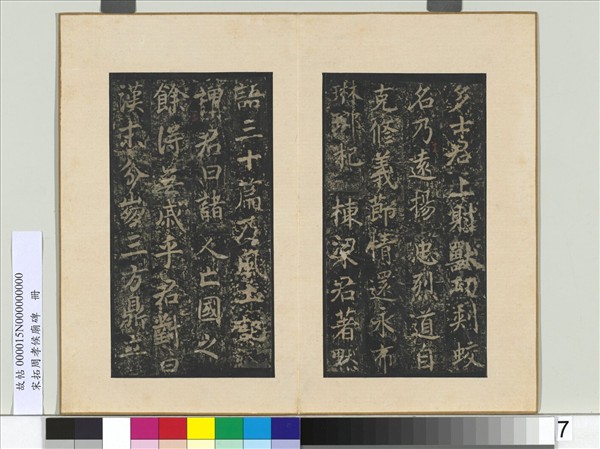 多士君上射獸功刺蛟
名乃遠揚忠烈道自
克修義節情還永布
琳瑯杞棟梁君著默
語三十篇及風土
君曰諸人亡國之
餘得無戚乎君對曰
漢末分崩三方鼎立
故帖 000015N000000000
宋拓周孝侯廟碑 冊
7